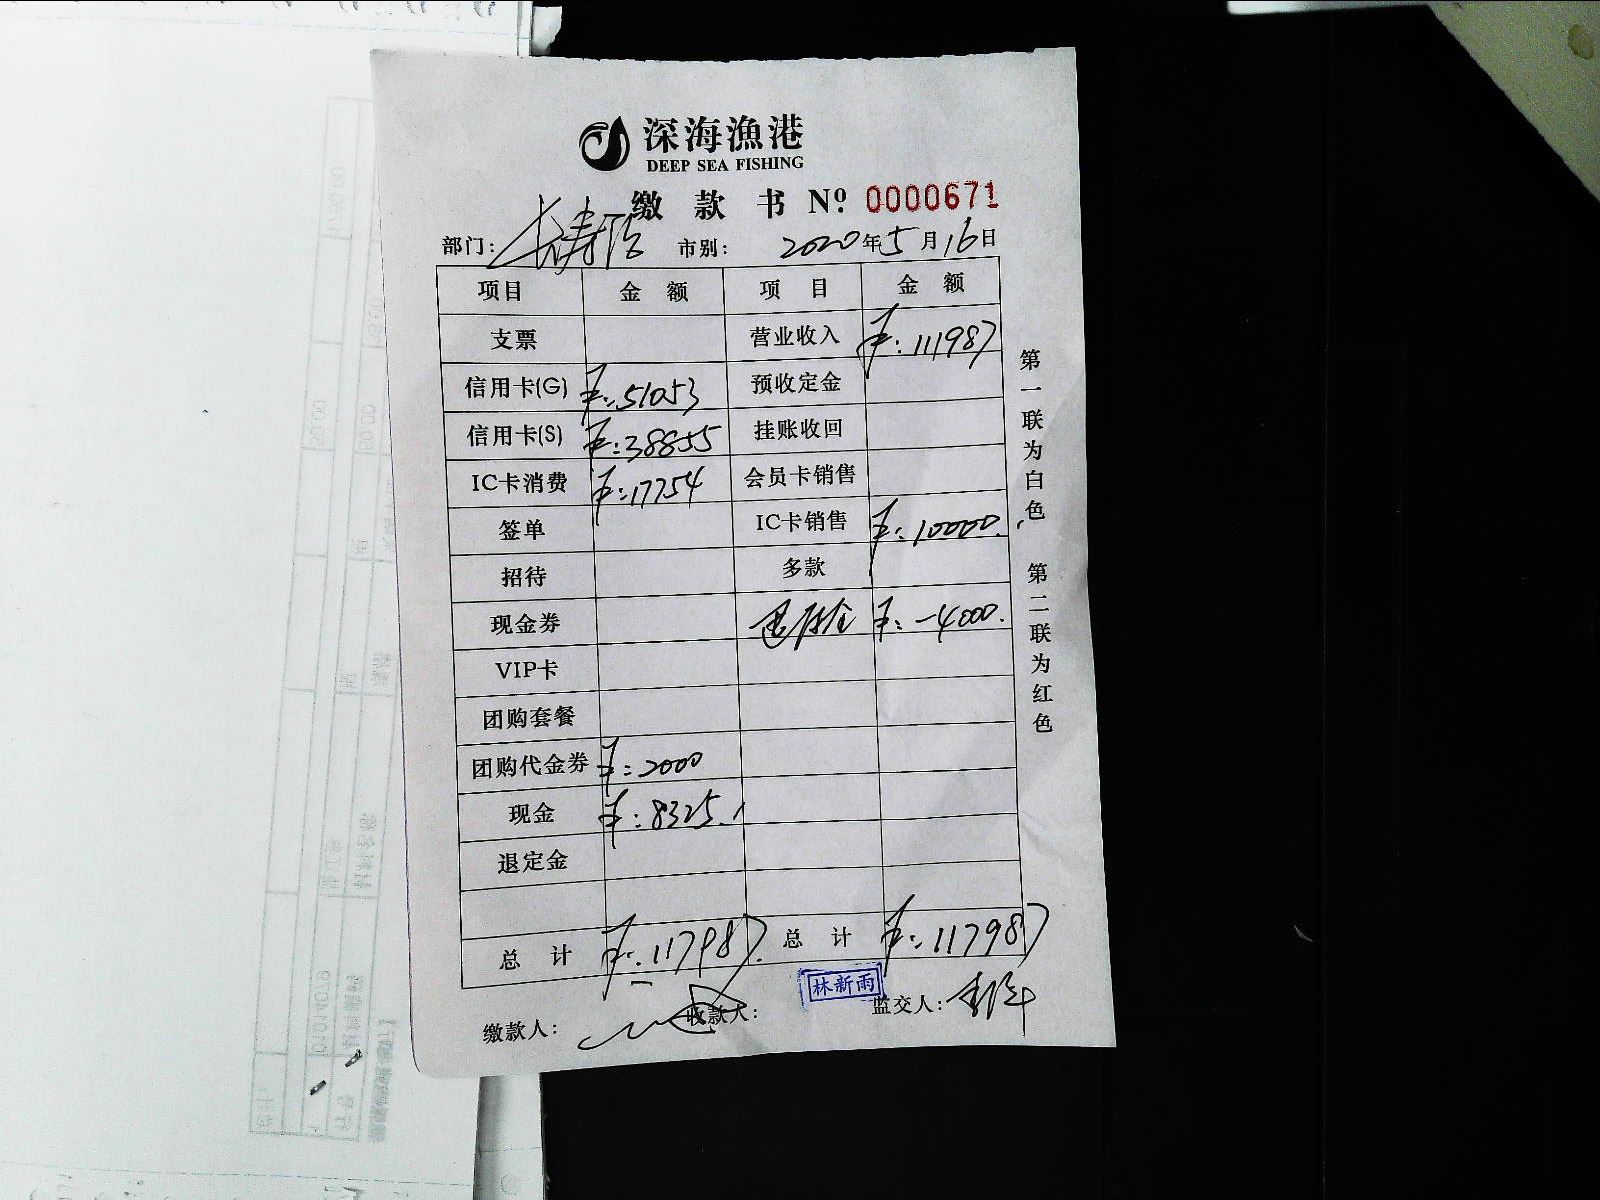 深海漁港
DEEP SEA FISHING
缴款书 Nº 0000671
部门： 市别： 2020年5月16日
项目 金额 项目 金额
支票 营业收入 ¥：111987
信用卡(G) ¥：51053 预收定金
信用卡(S) ¥：38855 挂账收回
IC卡消费 ¥：17754 会员卡销售
签单 IC卡销售 ¥：10000.
招待 多款
现金券 ¥：-4000.
VIP卡
团购套餐
团购代金券 ¥：2000
现金 ¥：8325.
退定金
总计 ¥：117987 总计 ¥：117987
缴款人： 收款人： 林新雨 监交人：
第一联为白色 第二联为红色